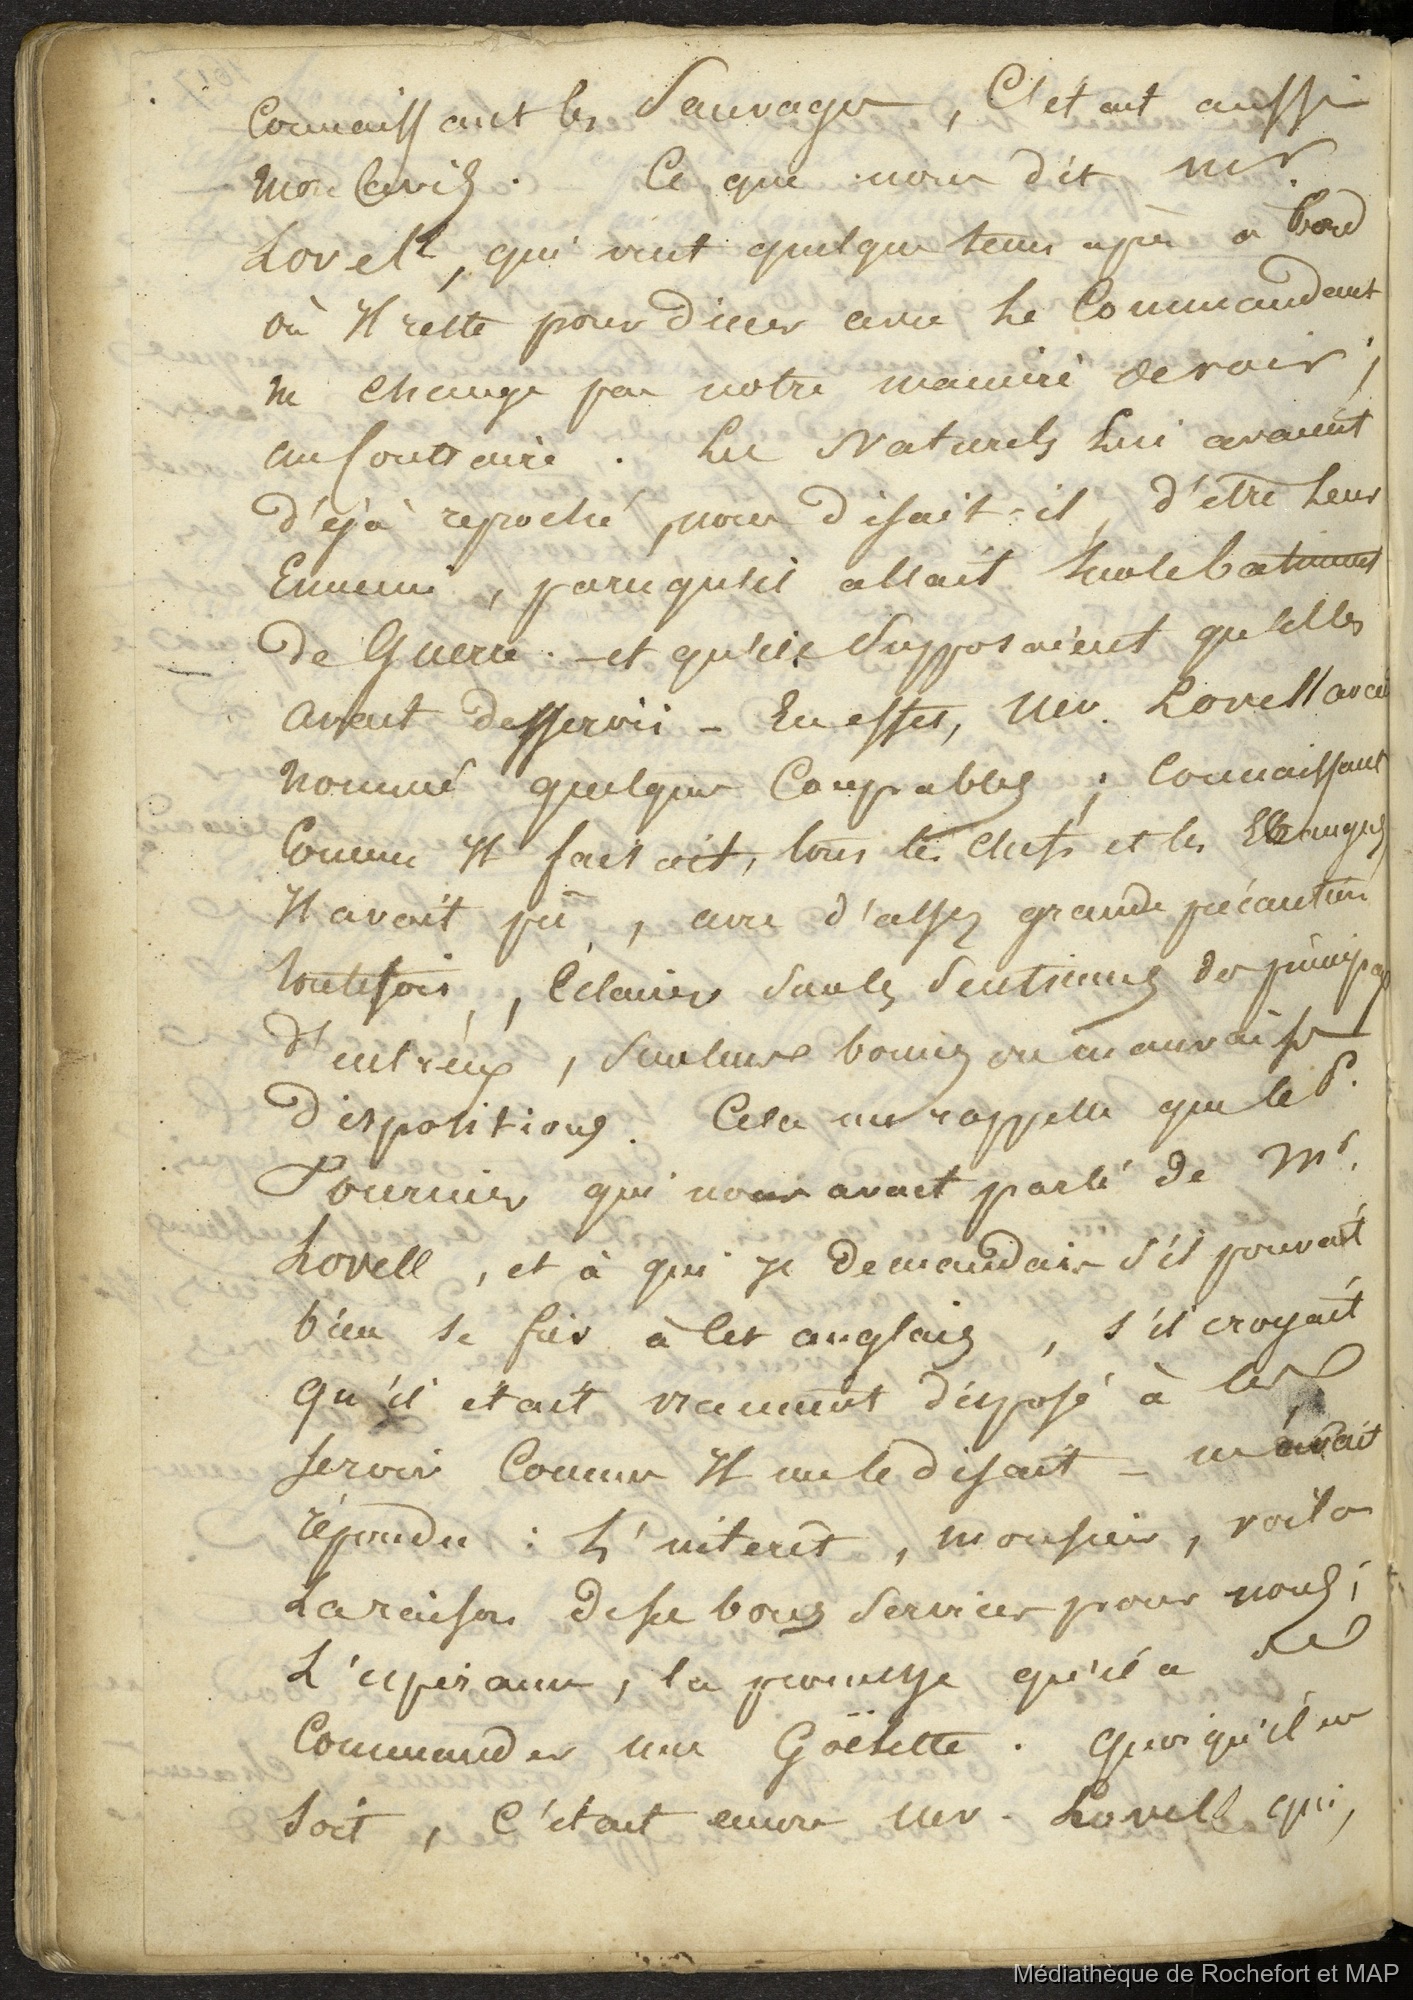 Connaissant les Sauvages, C'etait aussi
mon avis. Ce que nous dit Mr.
Lovell, qui vint quelque tems après a bord
où Il reste pour diner avec Le Commandant
ne change pas notre manière de voir,
au Contraire. Les Naturels Lui avaient
d'éjà reproché, nous disait-il, d'être Leur
Ennemi, parcequ'il allait sur le batiment
de Guerre. - et qu'ils supposaient qu'il les
avait desservis - En effet, Mr. Lovell avai
nommé quelques Coupables; Connaissant
Comme Il faisait, tous les Chefs et les
Il avait pû, avec d'assez grande précaution
toutefois, Eclairer sur les Sentimens des principa
d'entr'eux, sur leurs bonnes ou mauvaises
dispositions. Cela me rappelle que le P.
Fournier qui nous avait parlé de Mr.
Lovell, et à qui je demandais s'il pouvait
bien se fier à cet anglais, s'il croyait
qu'il était vraiment disposé à les
servir Comme Il me le disait - m'avait
répondu : L'interêt, monsieur, voila
La raison de ses bons Services pour nous;
L'esperance, la promesse qu'il a de
Commander une Goëlette. Quoiqu'il en
soit, C'était encore Mr. Lovell qui,
Médiathèque de Rochefort et MAP